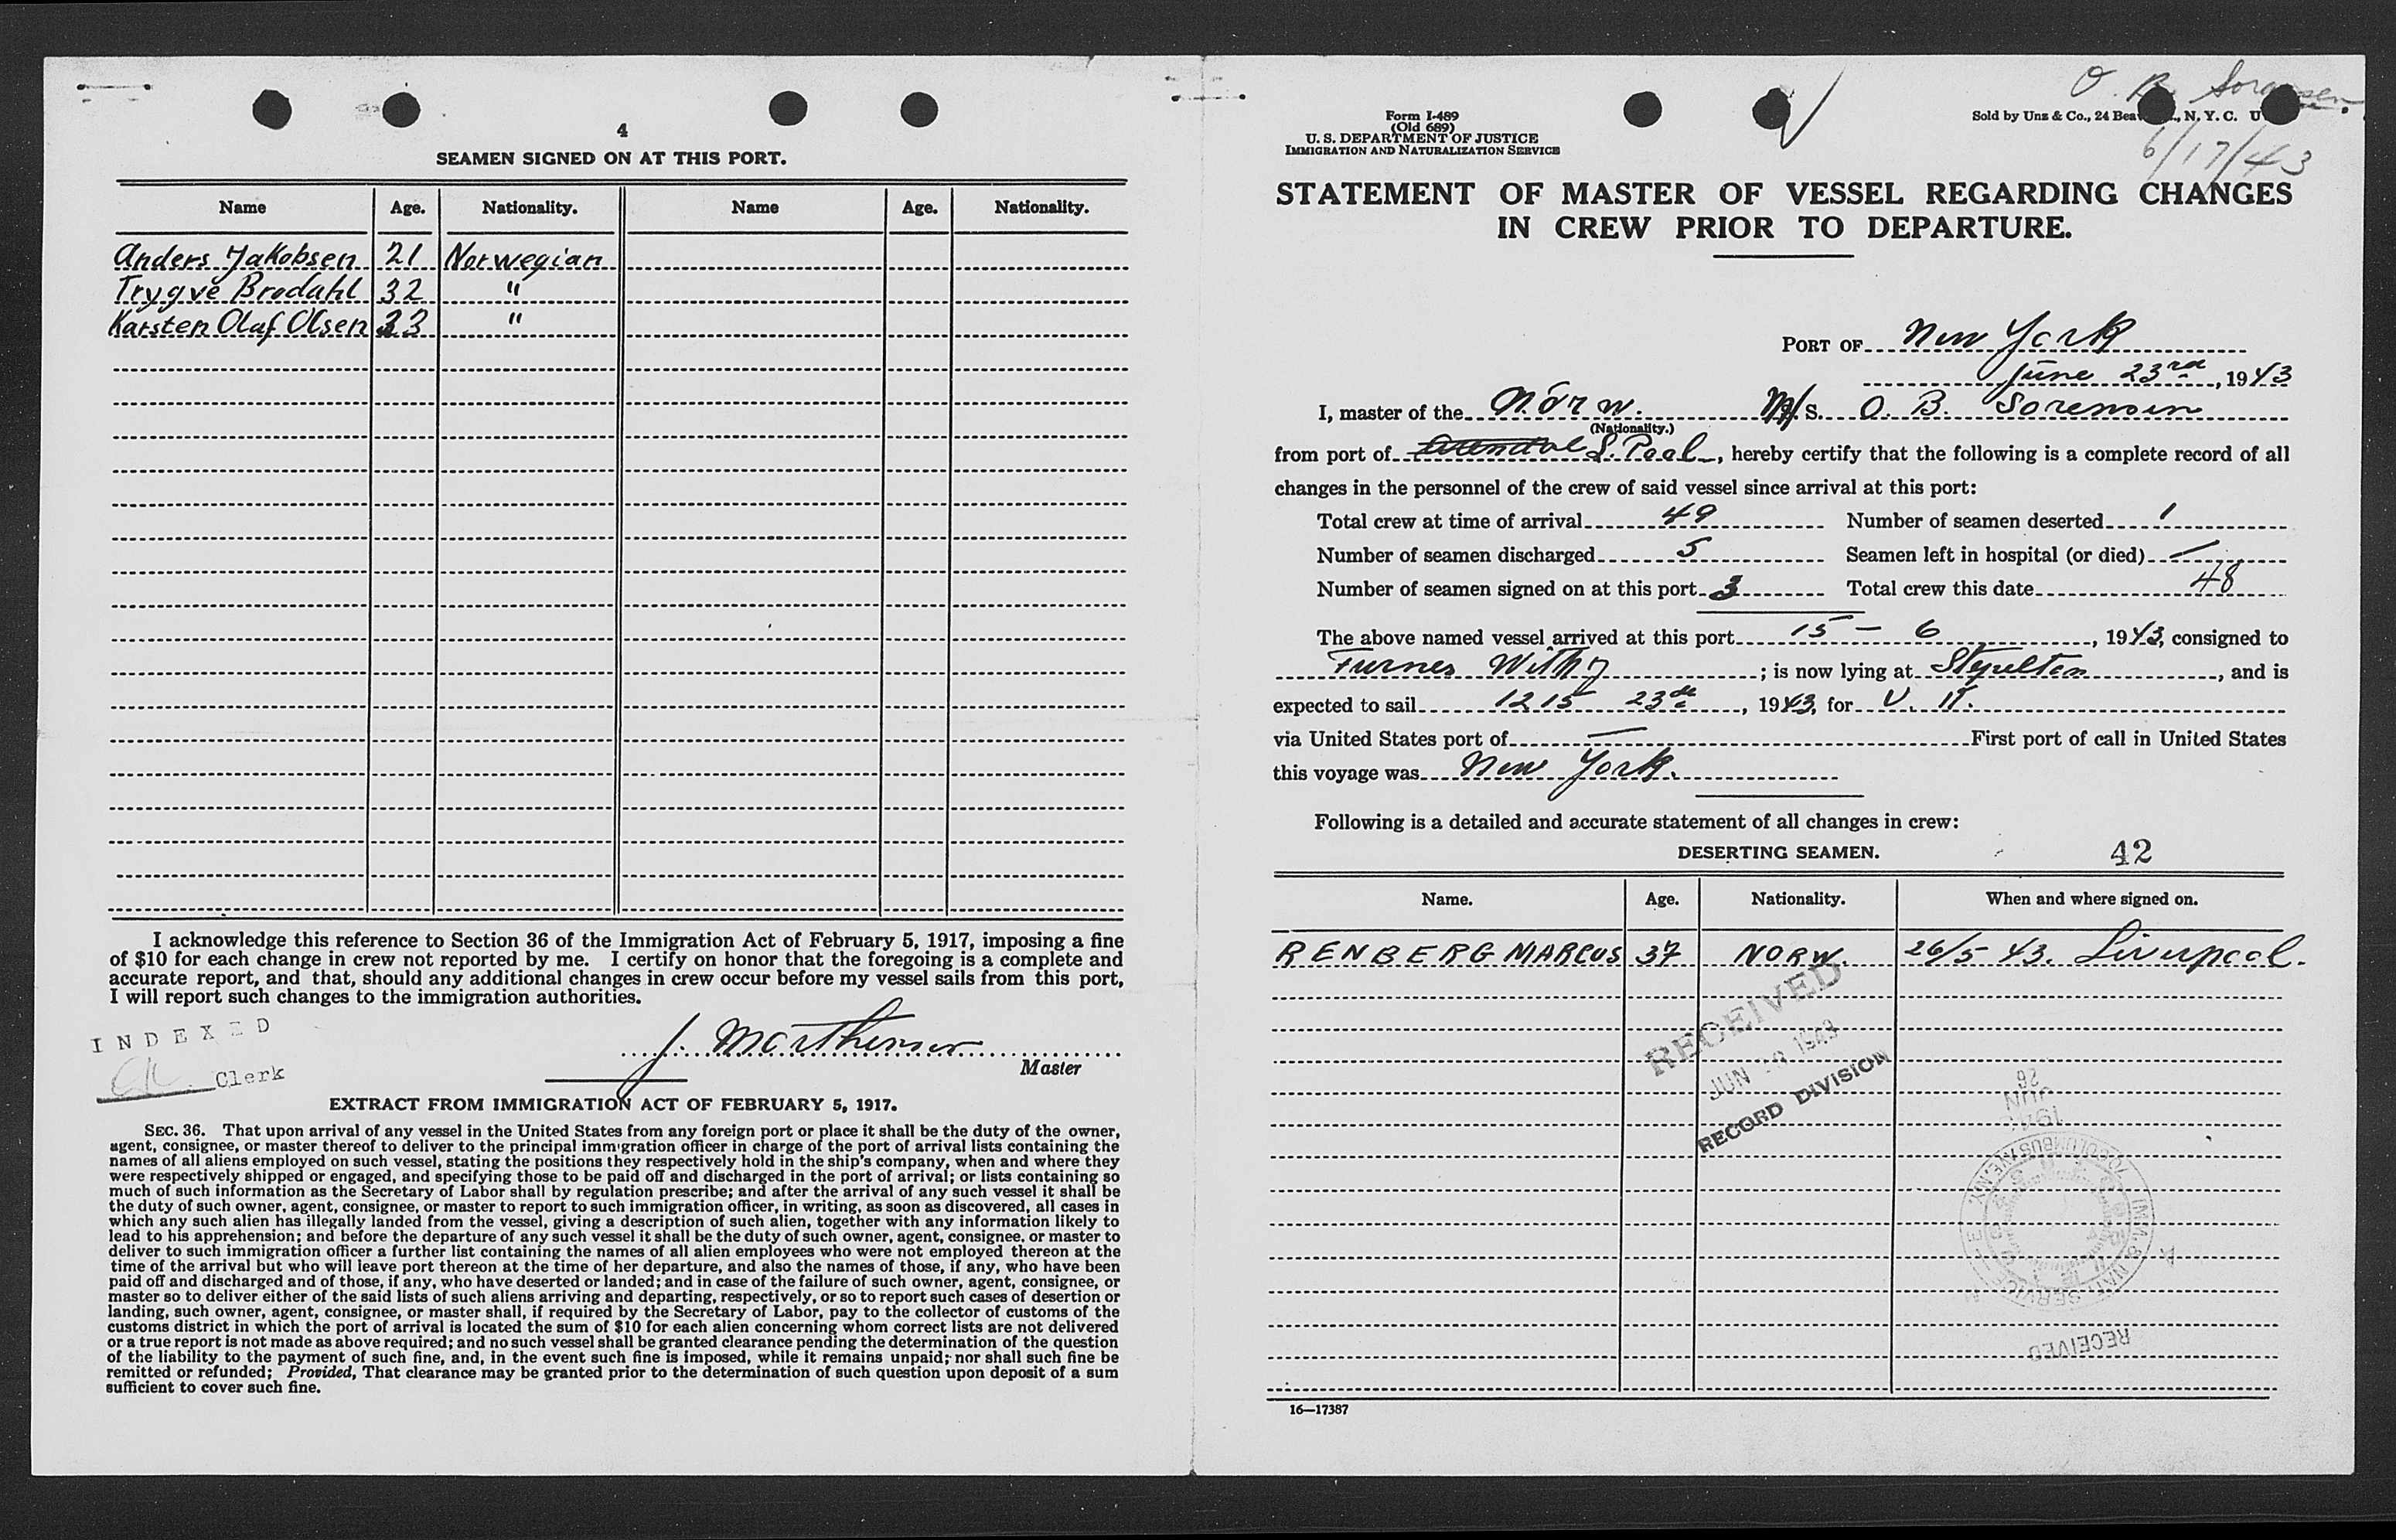 4
SEAMEN SIGNED ON AT THIS PORT.
Name Age. Nationality. Name Age. Nationality.
Anders Jakobsen 21 Norwegian
Trygve Brodahl 32 "
Karsten Olaf Olsen 33 "
I acknowledge this reference to Section 36 of the Immigration Act of February 5, 1917, imposing a fine
of $10 for each change in crew not reported by me. I certify on honor that the foregoing is a complete and
accurate report, and that, should any additional changes in crew occur before my vessel sails from this port,
I will report such changes to the immigration authorities.
INDEXED
Clerk
J. Marthinsen
Master
EXTRACT FROM IMMIGRATION ACT OF FEBRUARY 5, 1917.
SEC. 36. That upon arrival of any vessel in the United States from any foreign port or place it shall be the duty of the owner,
agent, consignee, or master thereof to deliver to the principal immigration officer in charge of the port of arrival lists containing the
names of all aliens employed on such vessel, stating the positions they respectively hold in the ship's company, when and where they
were respectively shipped or engaged, and specifying those to be paid off and discharged in the port of arrival; or lists containing so
much of such information as the Secretary of Labor shall by regulation prescribe; and after the arrival of any such vessel it shall be
the duty of such owner, agent, consignee, or master to report to such immigration officer, in writing, as soon as discovered, all cases in
which any such alien has illegally landed from the vessel, giving a description of such alien, together with any information likely to
lead to his apprehension; and before the departure of any such vessel it shall be the duty of such owner, agent, consignee, or master to
deliver to such immigration officer a further list containing the names of all alien employees who were not employed thereon at the
time of the arrival but who will leave port thereon at the time of her departure, and also the names of those, if any, who have been
paid off and discharged and of those, if any, who have deserted or landed; and in case of the failure of such owner, agent, consignee, or
master so to deliver either of the said lists of such aliens arriving and departing, respectively, or so to report such cases of desertion or
landing, such owner, agent, consignee, or master shall, if required by the Secretary of Labor, pay to the collector of customs of the
customs district in which the port of arrival is located the sum of $10 for each alien concerning whom correct lists are not delivered
or a true report is not made as above required; and no such vessel shall be granted clearance pending the determination of the question
of the liability to the payment of such fine, and, in the event such fine is imposed, while it remains unpaid; nor shall such fine be
remitted or refunded; Provided, That clearance may be granted prior to the determination of such question upon deposit of a sum
sufficient to cover such fine.
O. B. Sorensen.
6/17/43
Form I-489
(Old 689)
U. S. DEPARTMENT OF JUSTICE
IMMIGRATION AND NATURALIZATION SERVICE
Sold by Unz & Co., 24 Bea , N. Y. C. U
STATEMENT OF MASTER OF VESSEL REGARDING CHANGES
IN CREW PRIOR TO DEPARTURE.
PORT OF New York
June 23rd, 1943
I, master of the Norw. M/S. O. B. Sorensen
(Nationality.)
from port of L. Pool, hereby certify that the following is a complete record of all
changes in the personnel of the crew of said vessel since arrival at this port:
Total crew at time of arrival 49 Number of seamen deserted 1
Number of seamen discharged 5 Seamen left in hospital (or died) —
Number of seamen signed on at this port 3 Total crew this date 48
The above named vessel arrived at this port 15 - 6, 1943, consigned to
Furnes Withy; is now lying at Stepelton, and is
expected to sail 1215 23de, 1943, for U. K.
via United States port of — First port of call in United States
this voyage was New York.
Following is a detailed and accurate statement of all changes in crew:
DESERTING SEAMEN. 42
Name. Age. Nationality. When and where signed on.
RENBERG MARCUS 37 NORW. 26/5 43. Liverpool.
RECEIVED
JUN 1943
RECORD DIVISION
26
JUN
RECEIVED
16—17387